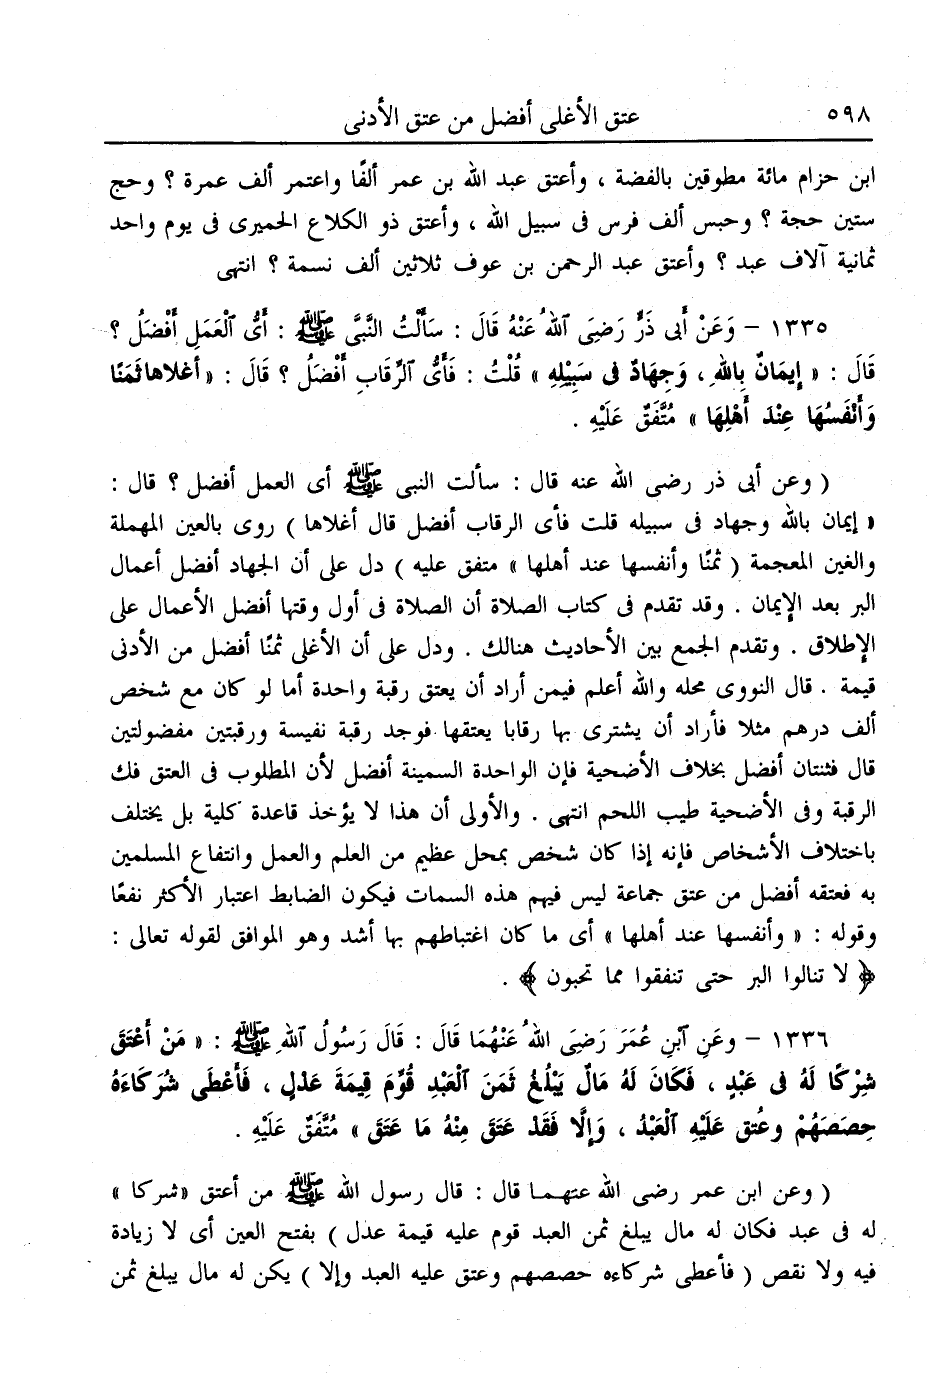 ٥٩٨ عتق الأغلى أفضل من عتق الأدنى
ابن حزام مائة مطوقين بالفضة ، وأعتق عبد الله بن عمر ألفًا واعتمر ألف عمرة ؟ وحج
ستين حجة ؟ وحبس ألف فرس فى سبيل الله ، وأعتق ذو الكلاع الحميرى فى يوم واحد
ثمانية آلاف عبد ؟ وأعتق عبد الرحمن بن عوف ثلاثين ألف نسمة ؟ انتهى
١٣٣٥ – وَعَنْ أَبِى ذَرٍّ رَضِىَ اللهُ عَنْهُ قَالَ : سَأَلْتُ النَّبِىَّ ﷺ : أَىُّ الْعَمَلِ أَفْضَلُ ؟
قَالَ : « إِيمَانٌ بِاللهِ ، وَجِهَادٌ فى سَبِيْلِهِ » قُلْتُ : فَأَىُّ الرِّقَابِ أَفْضَلُ ؟ قَالَ : « أغلاها ثَمَنًا
وَأَنْفَسُهَا عِنْدَ أَهْلِهَا » مُتَّفَقٌ عَلَيْهِ .
( وعن أبى ذر رضى الله عنه قال : سألت النبى ﷺ أى العمل أفضل ؟ قال :
« إيمان بالله وجهاد فى سبيله قلت فأى الرقاب أفضل قال أغلاها ) روى بالعين المهملة
والغين المعجمة ( ثمنًا وأنفسها عند أهلها » متفق عليه ) دل على أن الجهاد أفضل أعمال
البر بعد الإيمان . وقد تقدم فى كتاب الصلاة أن الصلاة فى أول وقتها أفضل الأعمال على
الإطلاق . وتقدم الجمع بين الأحاديث هنالك . ودل على أن الأغلى ثمنًا أفضل من الأدنى
قيمة . قال النووى محله والله أعلم فيمن أراد أن يعتق رقبة واحدة أما لو كان مع شخص
ألف درهم مثلا فأراد أن يشترى بها رقابا يعتقها فوجد رقبة نفيسة ورقبتين مفضولتين
قال فثنتان أفضل بخلاف الأضحية فإن الواحدة السمينة أفضل لأن المطلوب فى العتق فك
الرقبة وفى الأضحية طيب اللحم انتهى . والأولى أن هذا لا يؤخذ قاعدة كلية بل يختلف
باختلاف الأشخاص فإنه إذا كان شخص بمحل عظيم من العلم والعمل وانتفاع المسلمين
به فعتقه أفضل من عتق جماعة ليس فيهم هذه السمات فيكون الضابط اعتبار الأكثر نفعًا
وقوله : « وأنفسها عند أهلها » أى ما كان اغتباطهم بها أشد وهو الموافق لقوله تعالى :
﴿ لا تنالوا البر حتى تنفقوا مما تحبون ﴾ .
١٣٣٦ – وعَنِ ابْنِ عُمَرَ رَضِىَ اللهُ عَنْهُمَا قَالَ : قَالَ رَسُولُ اللهِ ﷺ : « مَنْ أَعْتَقَ
شِرْكًا لَهُ فى عَبْدٍ ، فَكَانَ لَهُ مَالٌ يَبْلُغُ ثَمَنَ الْعَبْدِ قُوِّمَ قِيمَةَ عَدْلٍ ، فَأَعْطَى شُرَكَاءَهُ
حِصَصَهُمْ وعُتِق عَلَيْهِ الْعَبْدُ ، وَإِلَّا فَقَدْ عَتَقَ مِنْهُ مَا عَتَقَ » مُتَّفَقٌ عَلَيْهِ .
( وعن ابن عمر رضى الله عنهما قال : قال رسول الله ﷺ من أعتق «شركا »
له فى عبد فكان له مال يبلغ ثمن العبد قوم عليه قيمة عدل ) بفتح العين أى لا زيادة
فيه ولا نقص ( فأعطى شركاءه حصصهم وعتق عليه العبد وإلا ) يكن له مال يبلغ ثمن